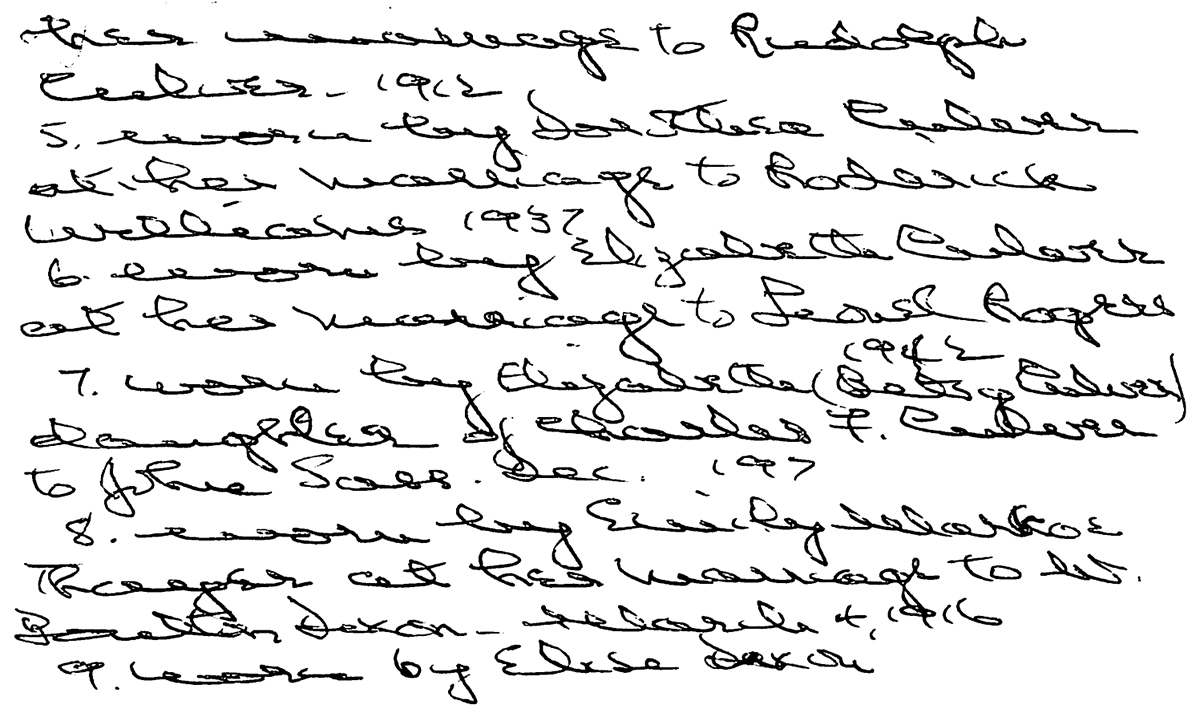 her marriage to Rudolph
Culver. 1912
5. worn by Dorothea Culver
at her marriage to Roderick
Williams 1937
6. worn by Elizabeth Culver
at her marriage to Rogers
1942
7. worn by Elizabeth (Betsy Culver)
daughter of Charles F. Culver
to John Sass. Dec. 197
8. worn by Emily Markoe
Thayer at her marriage to W.
Boulton Dixon - March 4, 1916
9. worn by Elise Dixon